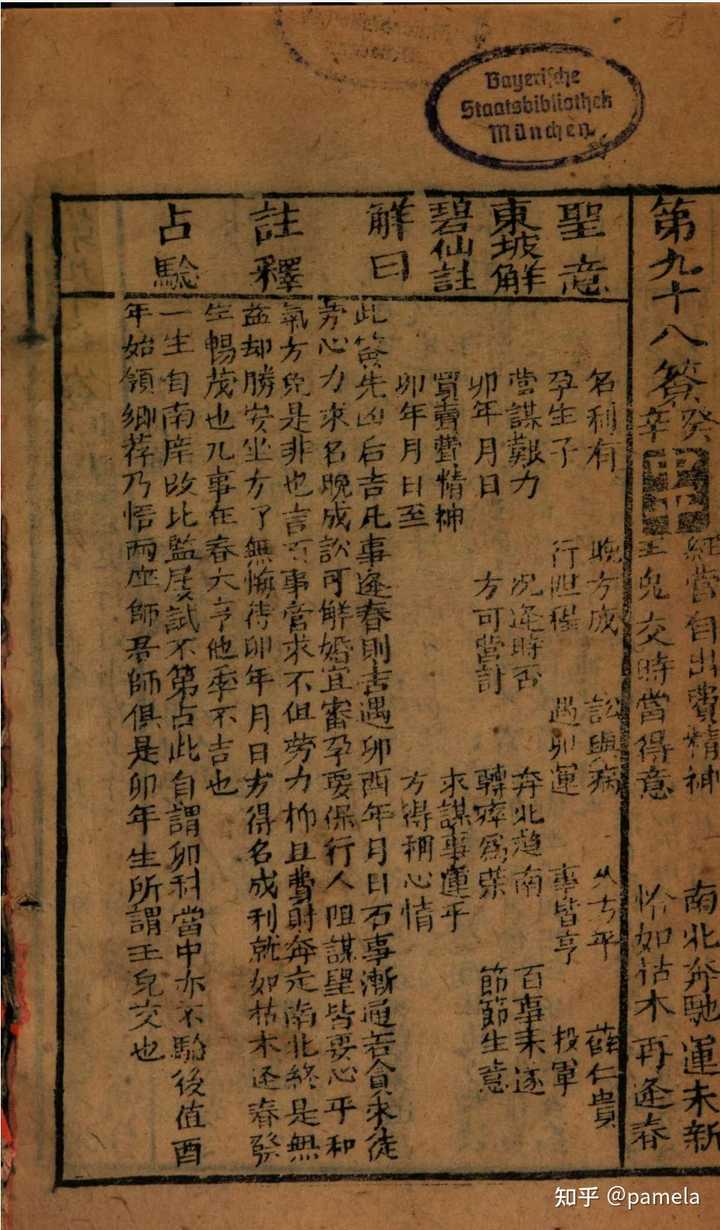 Bayerische
Staatsbibliothek
München
第九十八簽 癸辛
經營自出費精神 南北奔馳運未新
玉兔交時當得意 恰如枯木再逢春
聖意
名利有 晚方成 訟與病 久方平 薛仁貴
孕生子 行阻程 遇卯運 事皆亨 投軍
東坡解
營謀艱力 況逢時否 奔北趨南 百事未遂
卯年月日 方可營討 轉瘁為榮 節節生意
碧仙註
買賣費精神 求謀事運乎
卯年月日至 方得稱心情
解曰
此簽先凶后吉凡事逢春則吉遇卯酉年月日百事漸通若貪求徒
勞心力求名晚成訟可解婚宜審孕要保行人阻謀望皆要心平和
氣方免是非也言百事營求不但勞力抑且費財奔走南北終是無
註釋
益却勝安坐方了無悔待卯年月日方得名成利就如枯木逢春發
生暢茂也凡事在春大亨他季不吉也
占驗
一生自南庠改北監屢試不第占此自謂卯科當中亦不驗後值酉
年始領鄉荐乃悟兩座師君師俱是卯年生所謂玉兔交也
知乎 @pamela